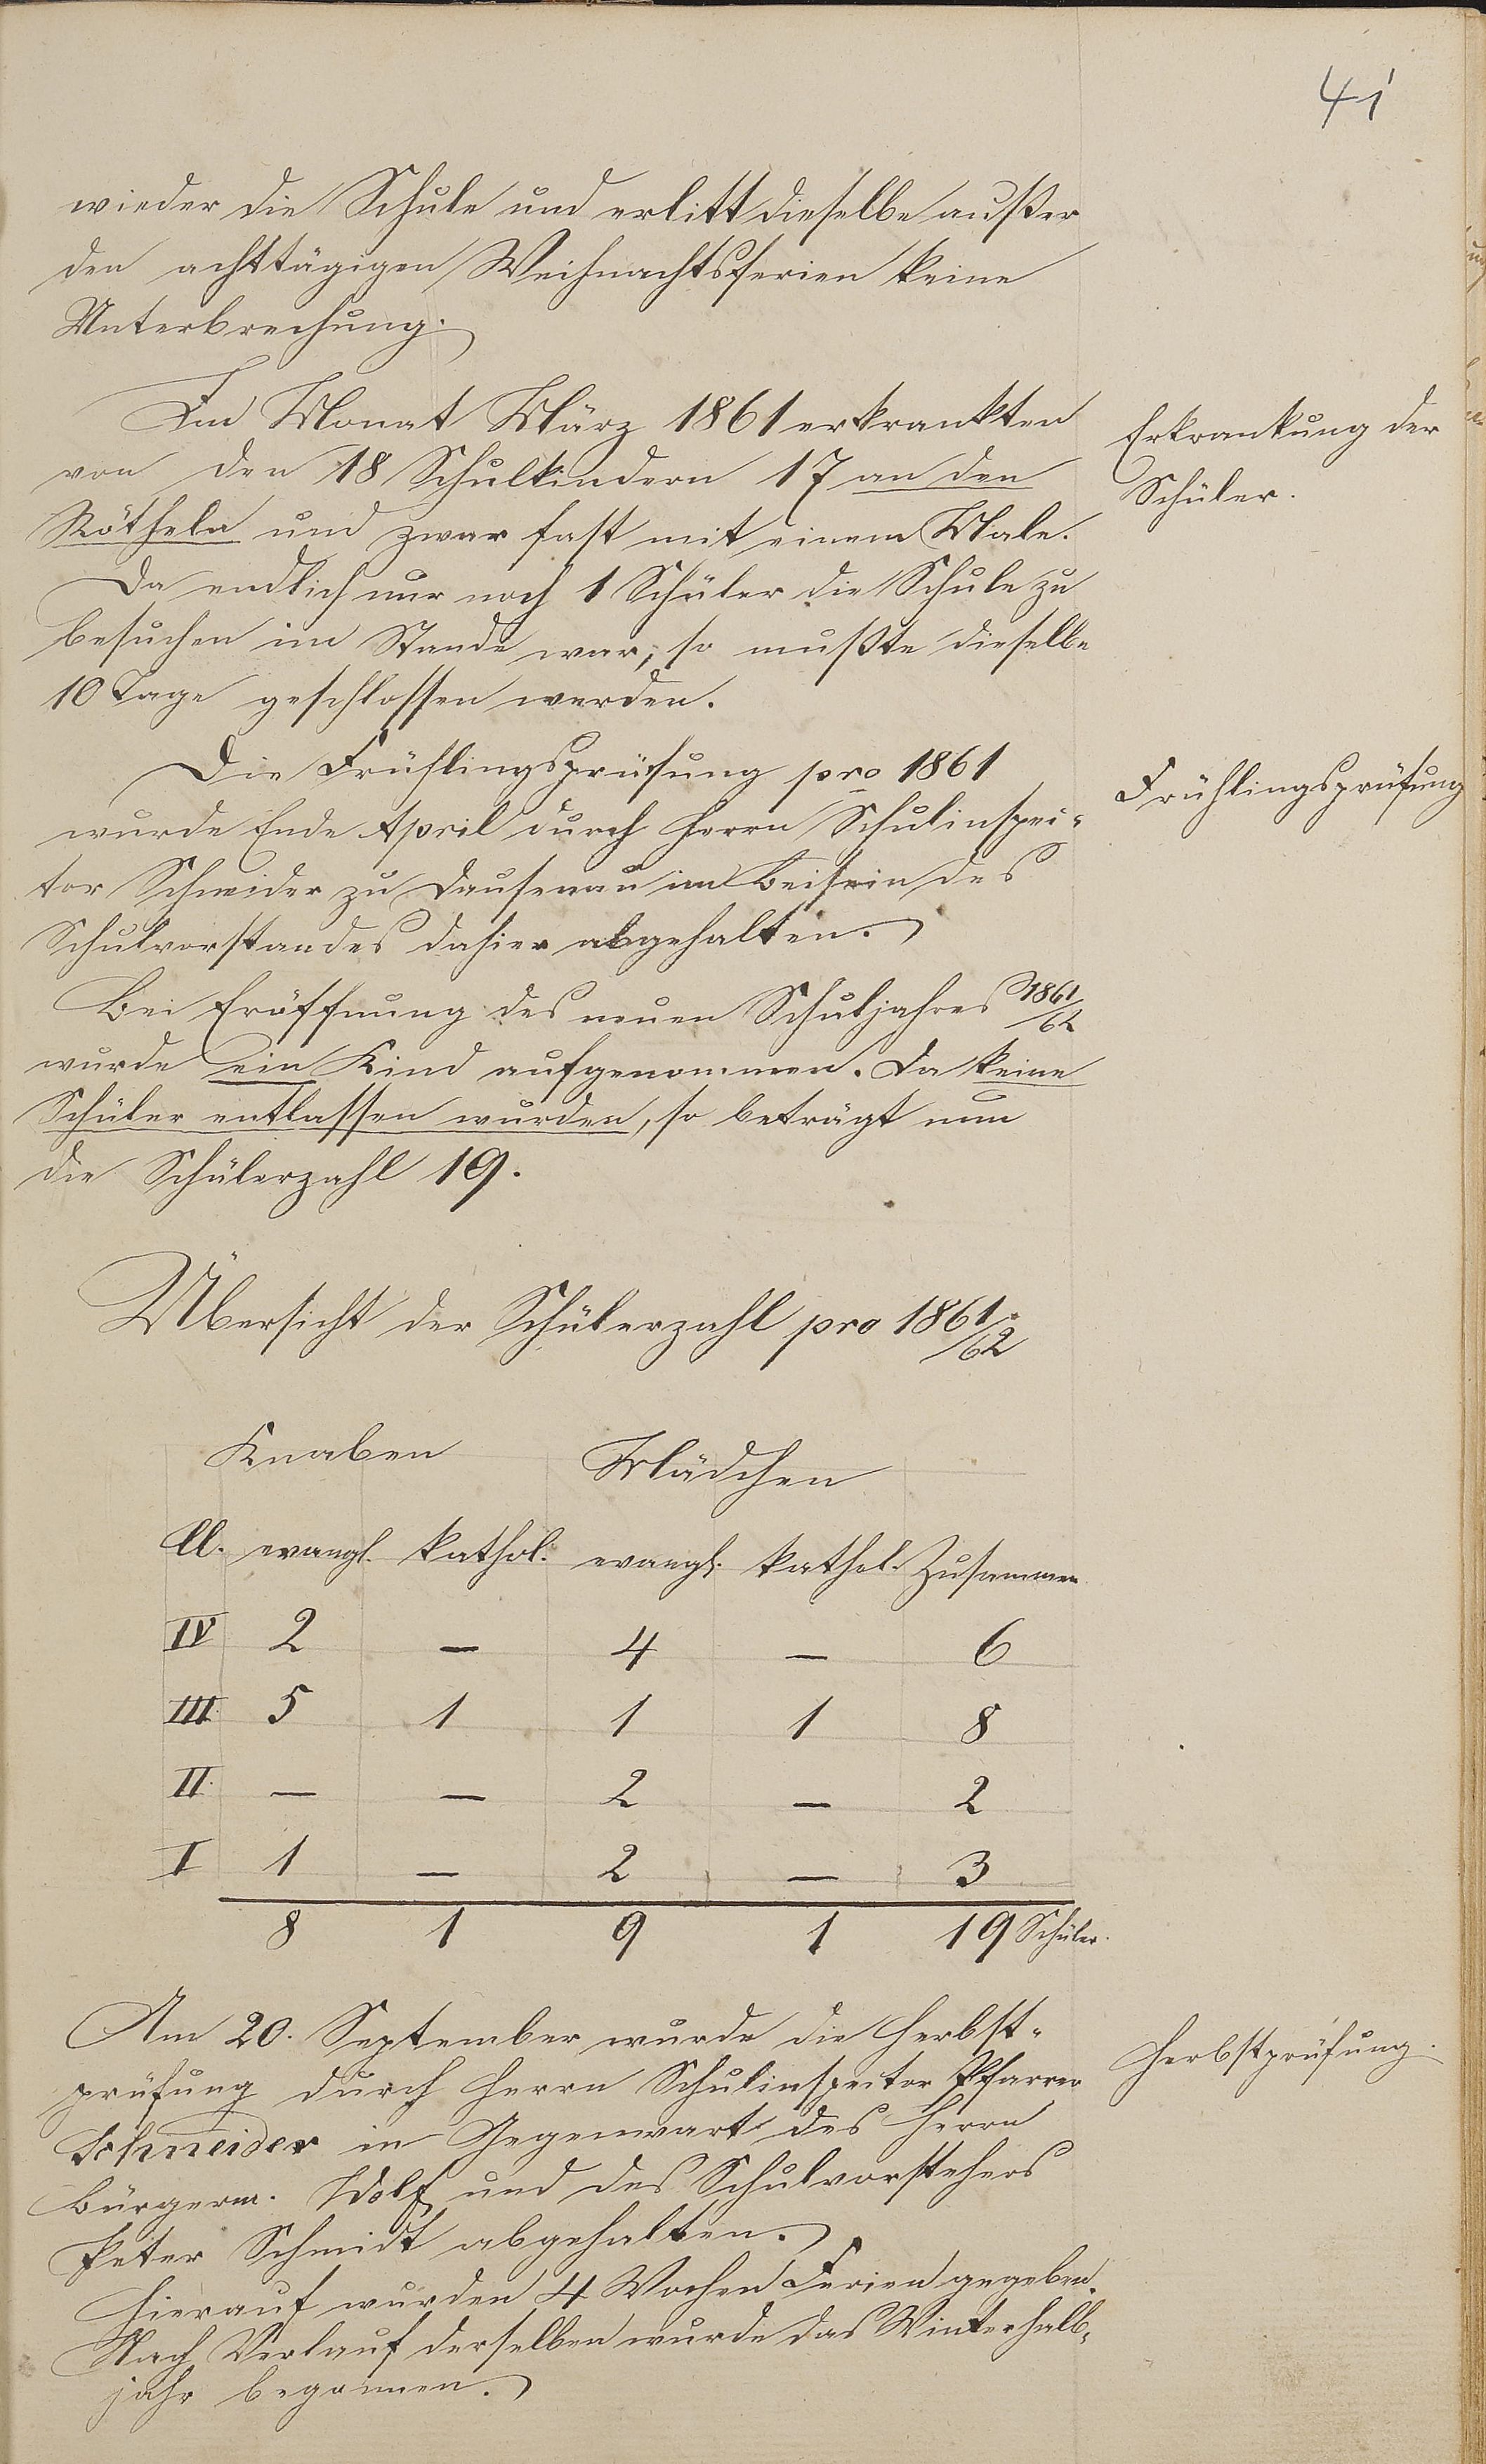 41
wieder die Schule und erlitt dieselbe außer
den achttägigen Weihnachtsferien keine
Unterbrechung.
Im Monat März 1861 erkrankten
von den 18 Schulkindern 17 an den
Rötheln und zwar fast mit einem Male.
Erkrankung der
Schüler.
Da endlich nur noch 1 Schüler die Schule zu
besuchen im Stande war, so mußte dieselbe
10 Tage geschlossen werden.
Die Frühlingsprüfung pro 1861
Frühlingsprüfung
wurde Ende April durch Herrn Schulinspec-
tor Schneider zu Dausenau im Beisein des
Schulvorstandes dahier abgehalten.
Bei Eröffnung des neuen Schuljahres 1861/62
wurde ein Kind aufgenommen. Da keine
Schüler entlassen wurden, so beträgt nun
die Schülerzahl 19.
Übersicht der Schülerzahl pro 1861/62
Knaben Mädchen
Cl. evangl. kathol. evangl. kathol. Zusammen
IV 2 — 4 — 6
III 5 1 1 1 8
II. — — 2 — 2
I 1 — 2 — 3
8 1 9 1 19 Schüler.
Am 20. September wurde die Herbst-
prüfung durch Herrn Schulinspector Pfarrer
Herbstprüfung.
Schneider in Gegenwart des Herrn
Bürgerm. Wolf und des Schulvorstehers
Peter Schmidt abgehalten.
Hierauf wurden 4 Wochen Ferien gegeben.
Nach Verlauf derselben wurde das Winterhalb-
jahr begonnen.